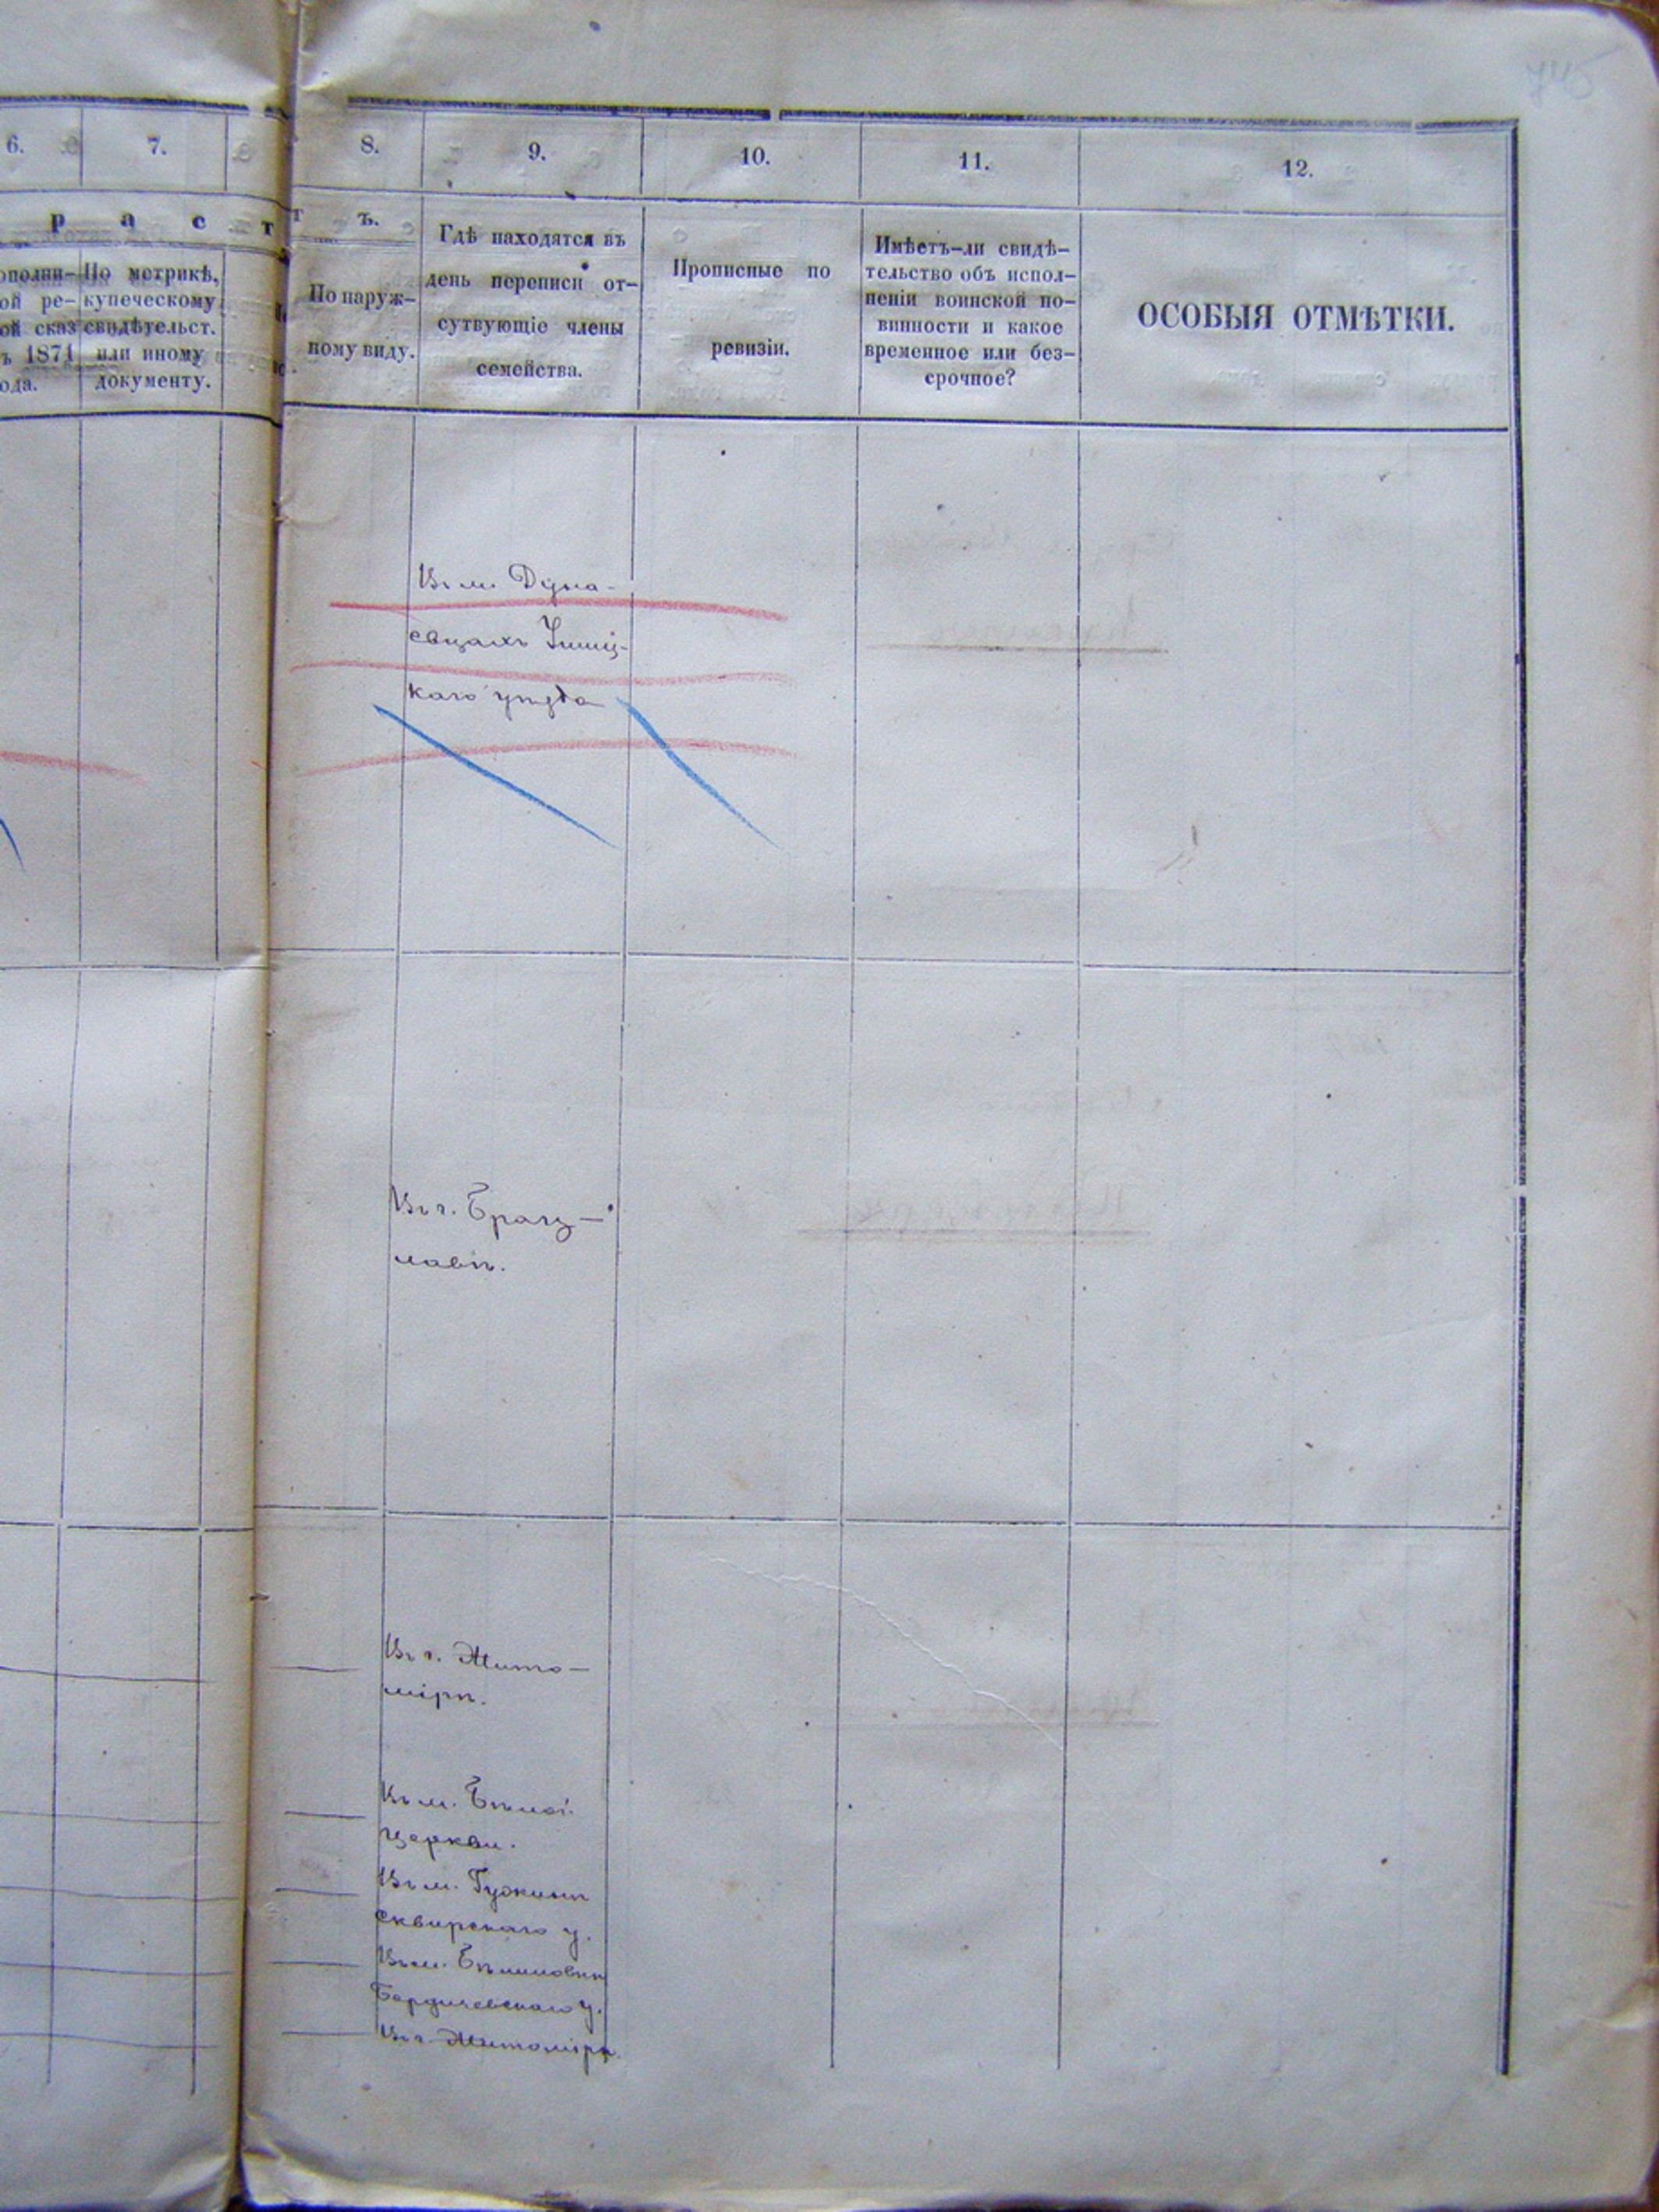 745
6.
7.
8.
9.
10.
11.
12.
р а с т
т ъ.
ополни-
ой ре-
ой сказ
ъ 1871
ода.
По метрикѣ,
купеческому
свидѣтельст.
или иному
документу.
По наруж-
ному виду.
Гдѣ находятся въ
день переписи от-
сутвующіе члены
семейства.
Прописные по
ревизіи.
Имѣетъ-ли свидѣ-
тельство объ испол-
неніи воинской по-
винности и какое
временное или без-
срочное?
ОСОБЫЯ ОТМѢТКИ.
Въ м. Дуна-
евцахъ Ушиц-
каго уѣзда
Въ г. Брац-
лавѣ.
Въ г. Жито-
мірѣ.
Въ м. Бѣлой
Церкви.
Въ м.
Сквирскаго у.
Въ м. Бѣлиловкѣ
Бердичевскаго у.
Въ г. Житомірѣ.